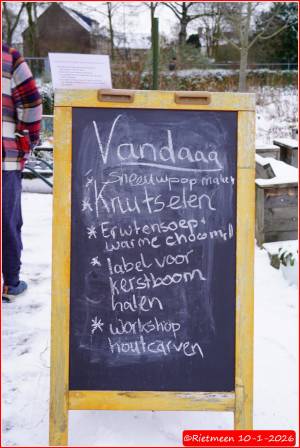 Vandaag
* Sneeuwpop maken
* Knutselen
* Erwtensoep +
warme chocomell
* label voor
kerstboom
halen
* workshop
houtcarven
©Rietmeen 10-1-2026